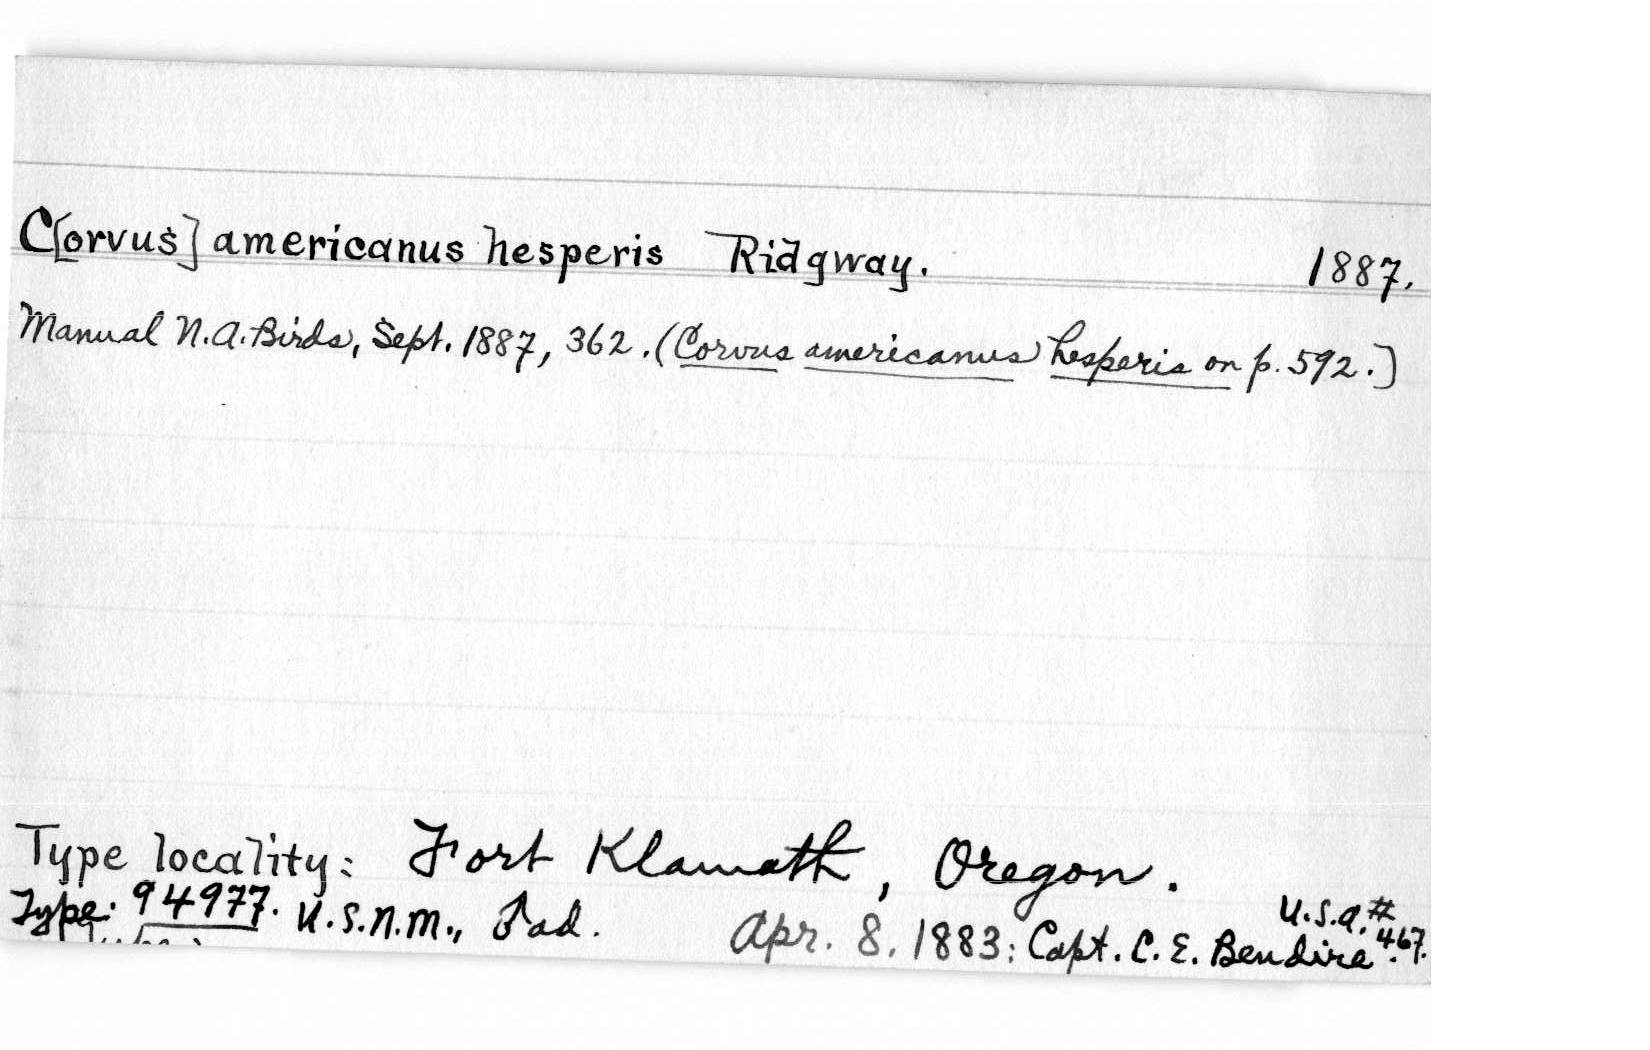 C[orvus] americanus hesperis Ridgway. 1887.
Manual N.A. Birds, Sept. 1887, 362. (Corvus americanus hesperis on p. 592.]
Type locality: Fort Klamath, Oregon.
Type: 94977. U.S.N.M., ♂ ad. Apr. 8, 1883: Capt. C. E. Bendire. U.S.A. # 467.